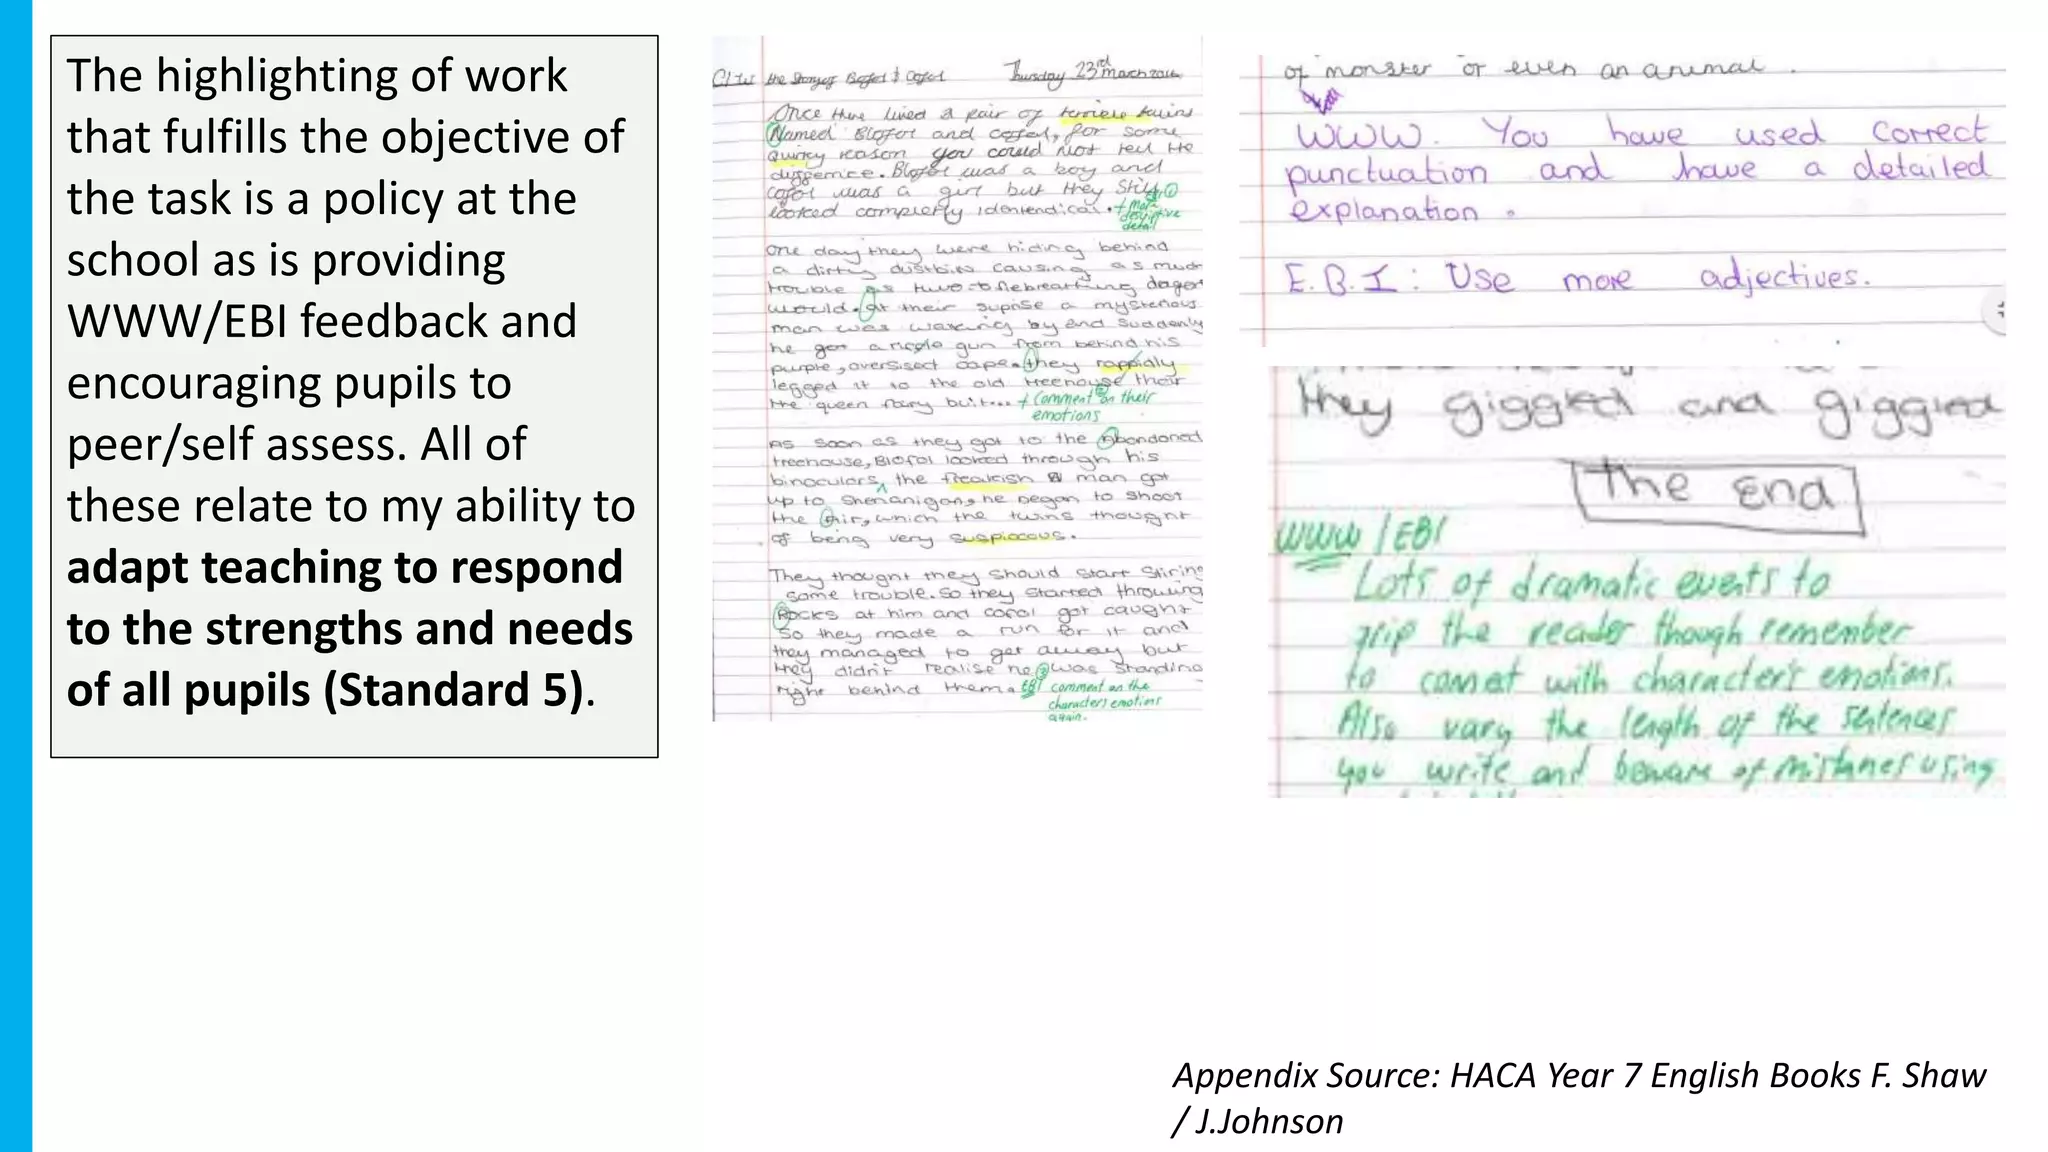 The highlighting of work
that fulfills the objective of
the task is a policy at the
school as is providing
WWW/EBI feedback and
encouraging pupils to
peer/self assess. All of
these relate to my ability to
adapt teaching to respond
to the strengths and needs
of all pupils (Standard 5).
C/W the Story of Blofol & Cofol Thursday 23rd March
Once there lived a pair of terrible twins
Named Blofol and Cofol, for some
quirky reason you could not tell the
differnce. Blofol was a boy and
Cofol was a girl but they still
looked completly identendical. + more
descriptive
detail
One day they were hiding behind
a dirty dustbin causing as much
trouble as two firebreathing
would. at their suprise a mysterious
man was walking by and suddenly
he got a gun from behind his
purple, oversised cape. they rappidly
legged it to the old treehouse their
the queen fairy built... + Comment on their
emotions
As soon as they got to the abandoned
treehouse, Blofol looked through his
binoculars, the freakish man got
up to shenanigans, he began to shoot
the air, which the twins thought
of being very suspiocous.
They thought they should start stiring
some trouble. So they started throwing
Rocks at him and cofol got caught
so they made a run for it and
they managed to get away but
they didn't realise he was standing
right behind them. EBI comment on the
characters emotions
again.
of monster or even an animal.
WWW. You have used correct
punctuation and have a detailed
explanation.
E.B.I: Use more adjectives.
they giggled and giggled
The End
WWW/EBI
Lots of dramatic events to
grip the reader though remember
to comment with character's emotions.
Also vary the length of the sentences
you write and beware of mistakes using
Appendix Source: HACA Year 7 English Books F. Shaw
/ J.Johnson